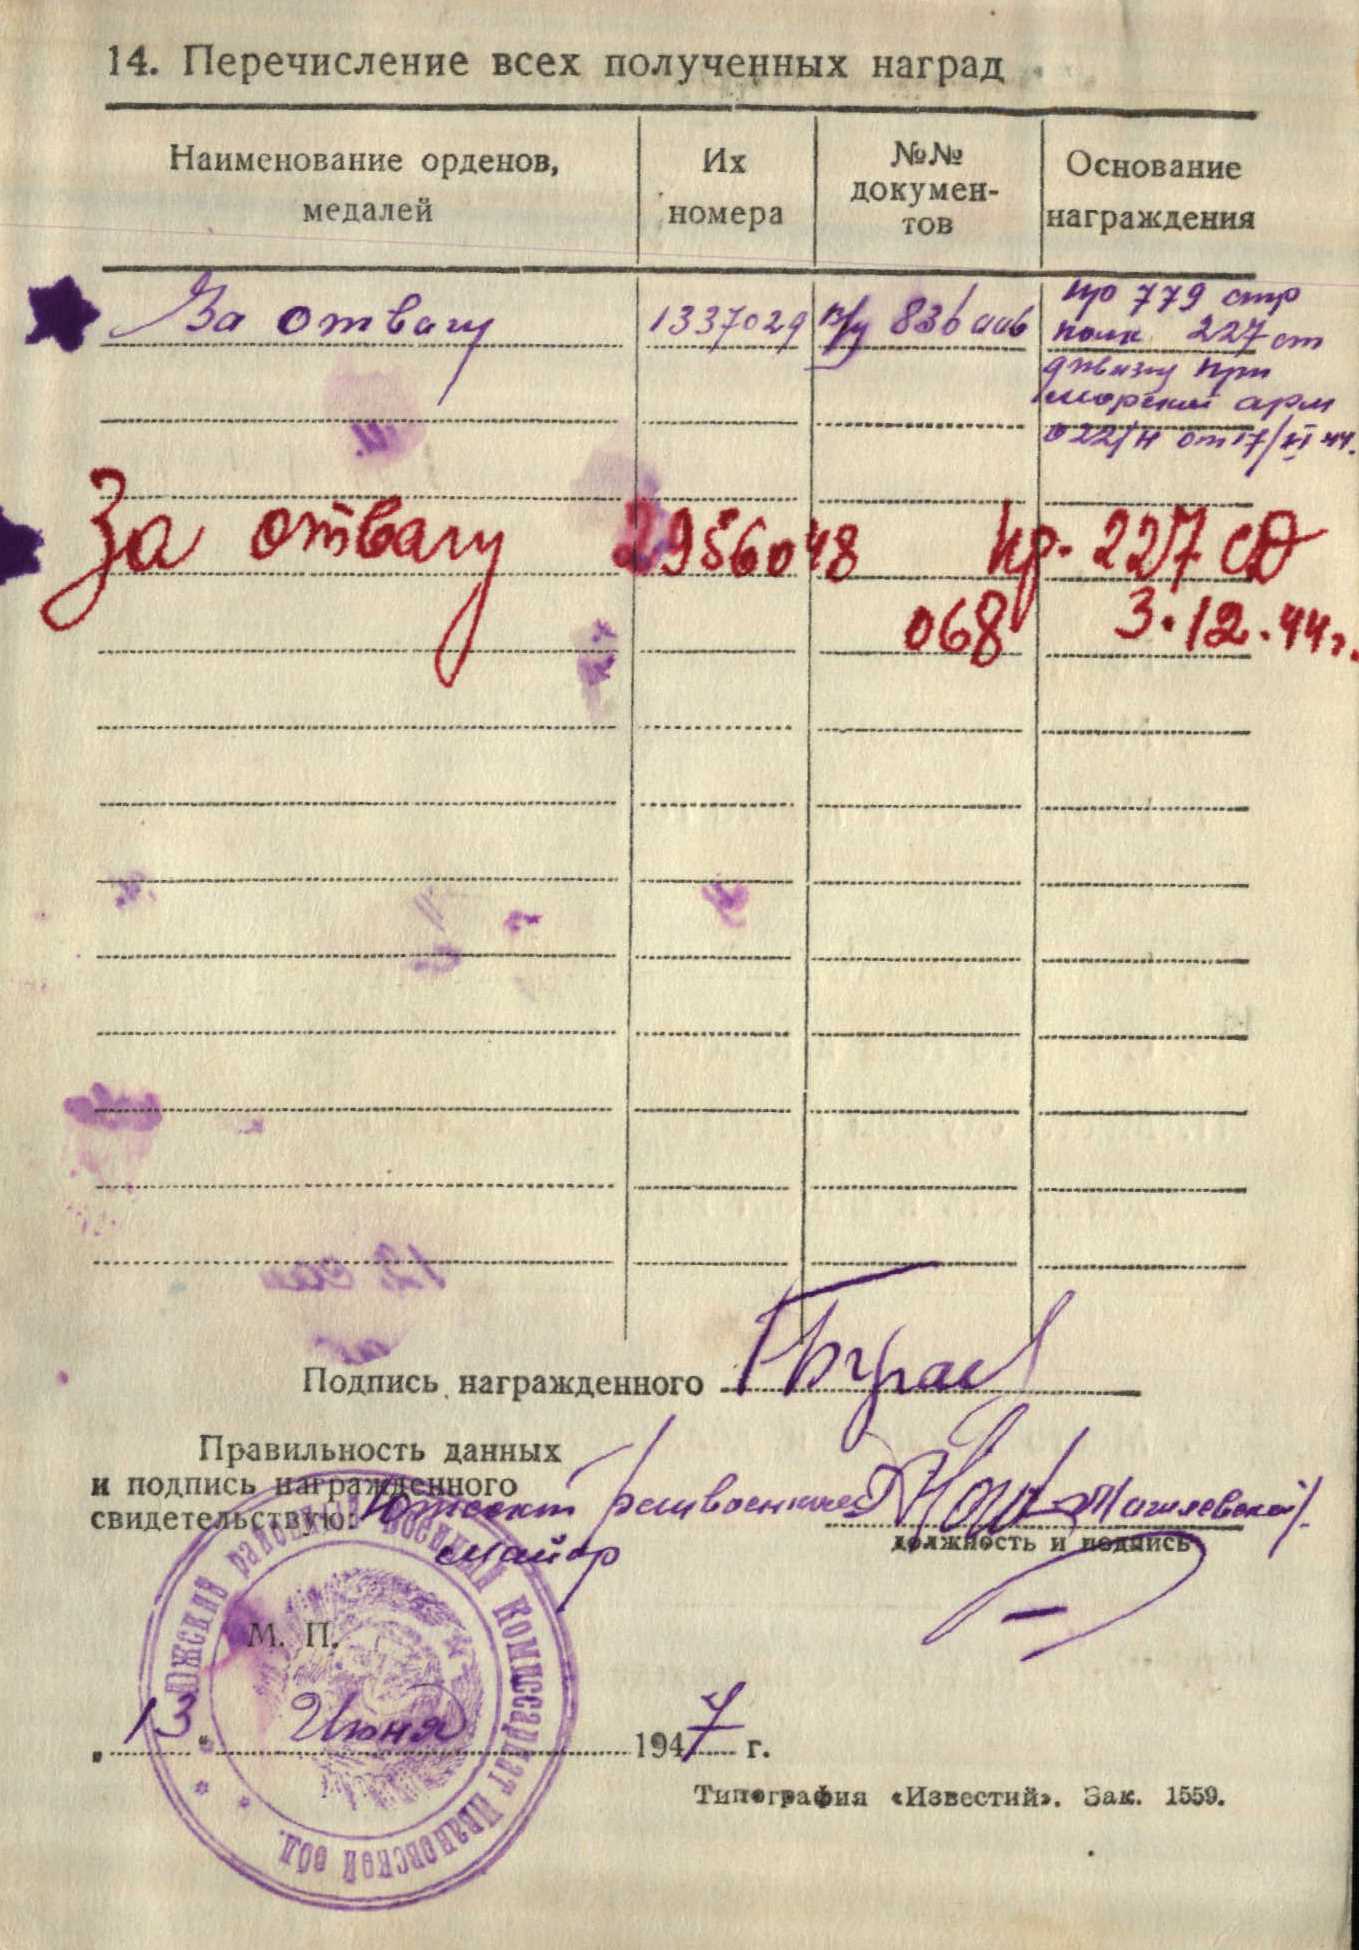 14. Перечисление всех полученных наград
Наименование орденов,
медалей
Их
номера
№№
докумен-
тов
Основание
награждения
За отвагу 1337029
пр 779 стр
полк 227 ст
дивизи При
морской арм
022/н от 17/VI 44.
За отвагу 2956048 пр. 227 СД
068 3.12.44г.
Подпись награжденного
Правильность данных
и подпись награжденного
свидетельствую: райвоенком
майор
должность и подпись
М. П.
Южский районный военный комиссариат Ивановской обл.
„13“ Июня 1947 г.
Типография «Известий». Зак. 1559.